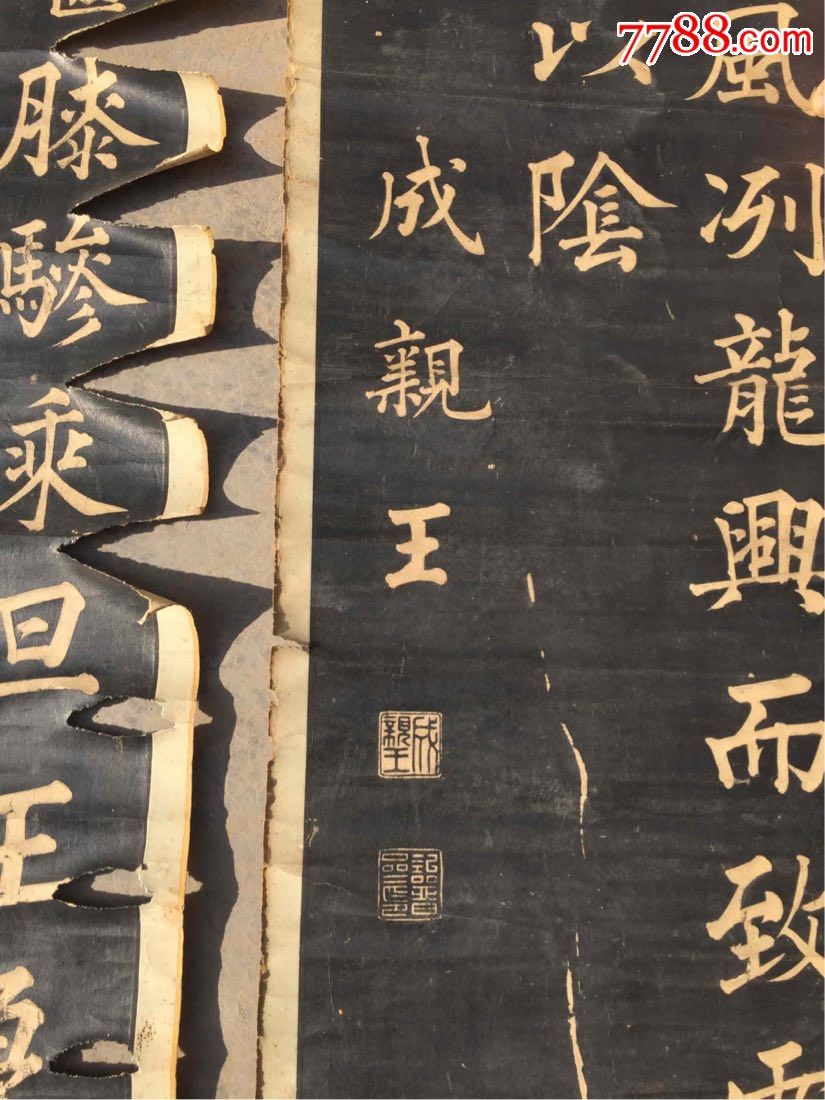 7788.com
風冽龍興而致
以陰
成親王
成親王
詒晉齋印
膝驂乘旦王